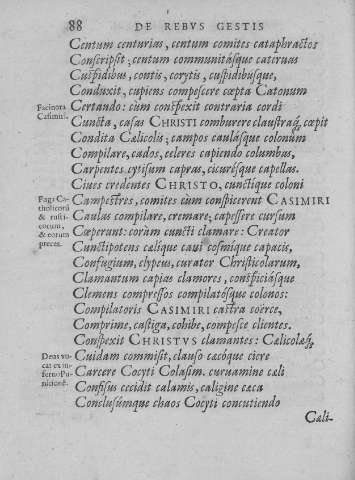 88 DE REBVS GESTIS
Centum centurias, centum comites cataphractos
Conscripsit; centum communitásque catervas
Cuspidibus, contis, corytis, cuspidibusque,
Conduxit, cupiens compescere cœpta Catonum
Facinora
Casimiri.
Certando: cùm conspexit contraria cordi
Cuncta, casas CHRISTI comburere claustraq́, cœpit
Condita Cælicolis; campos caulásque colonûm
Compilare, cados, celeres capiendo columbas,
Carpentes cytisum capras, cicurésque capellas.
Ciues credentes CHRISTO, cunctique coloni
Fuga Ca-
tholicorũ
& rusti-
corum,
& eorum
preces.
Campestres, comites cùm conspicerent CASIMIRI
Caulas compilare, cremare; capessere cursum
Cœperunt: coràm cuncti clamare: Creator
Cunctipotens cælique caui cosmique capacis,
Confugium, clypeus, curator Christicolarum,
Clamantum capias clamores, conspiciásque
Clemens compressos compilatósque colonos:
Compilatoris CASIMIRI castra coërce,
Comprime, castiga, cohibe, compesce clientes.
Conspexit CHRISTVS clamantes: Cælicolæq́,
Deus vo-
cat ex in-
ferno Pu-
nicionẽ.
Cuidam commisit, clauso cæcóque ciere
Carcere Cocyti Colasim. curuamine cæli
Confisus cecidit calamis, caligine cæca
Conclusúmque chaos Cocyti concutiendo
Cæli-